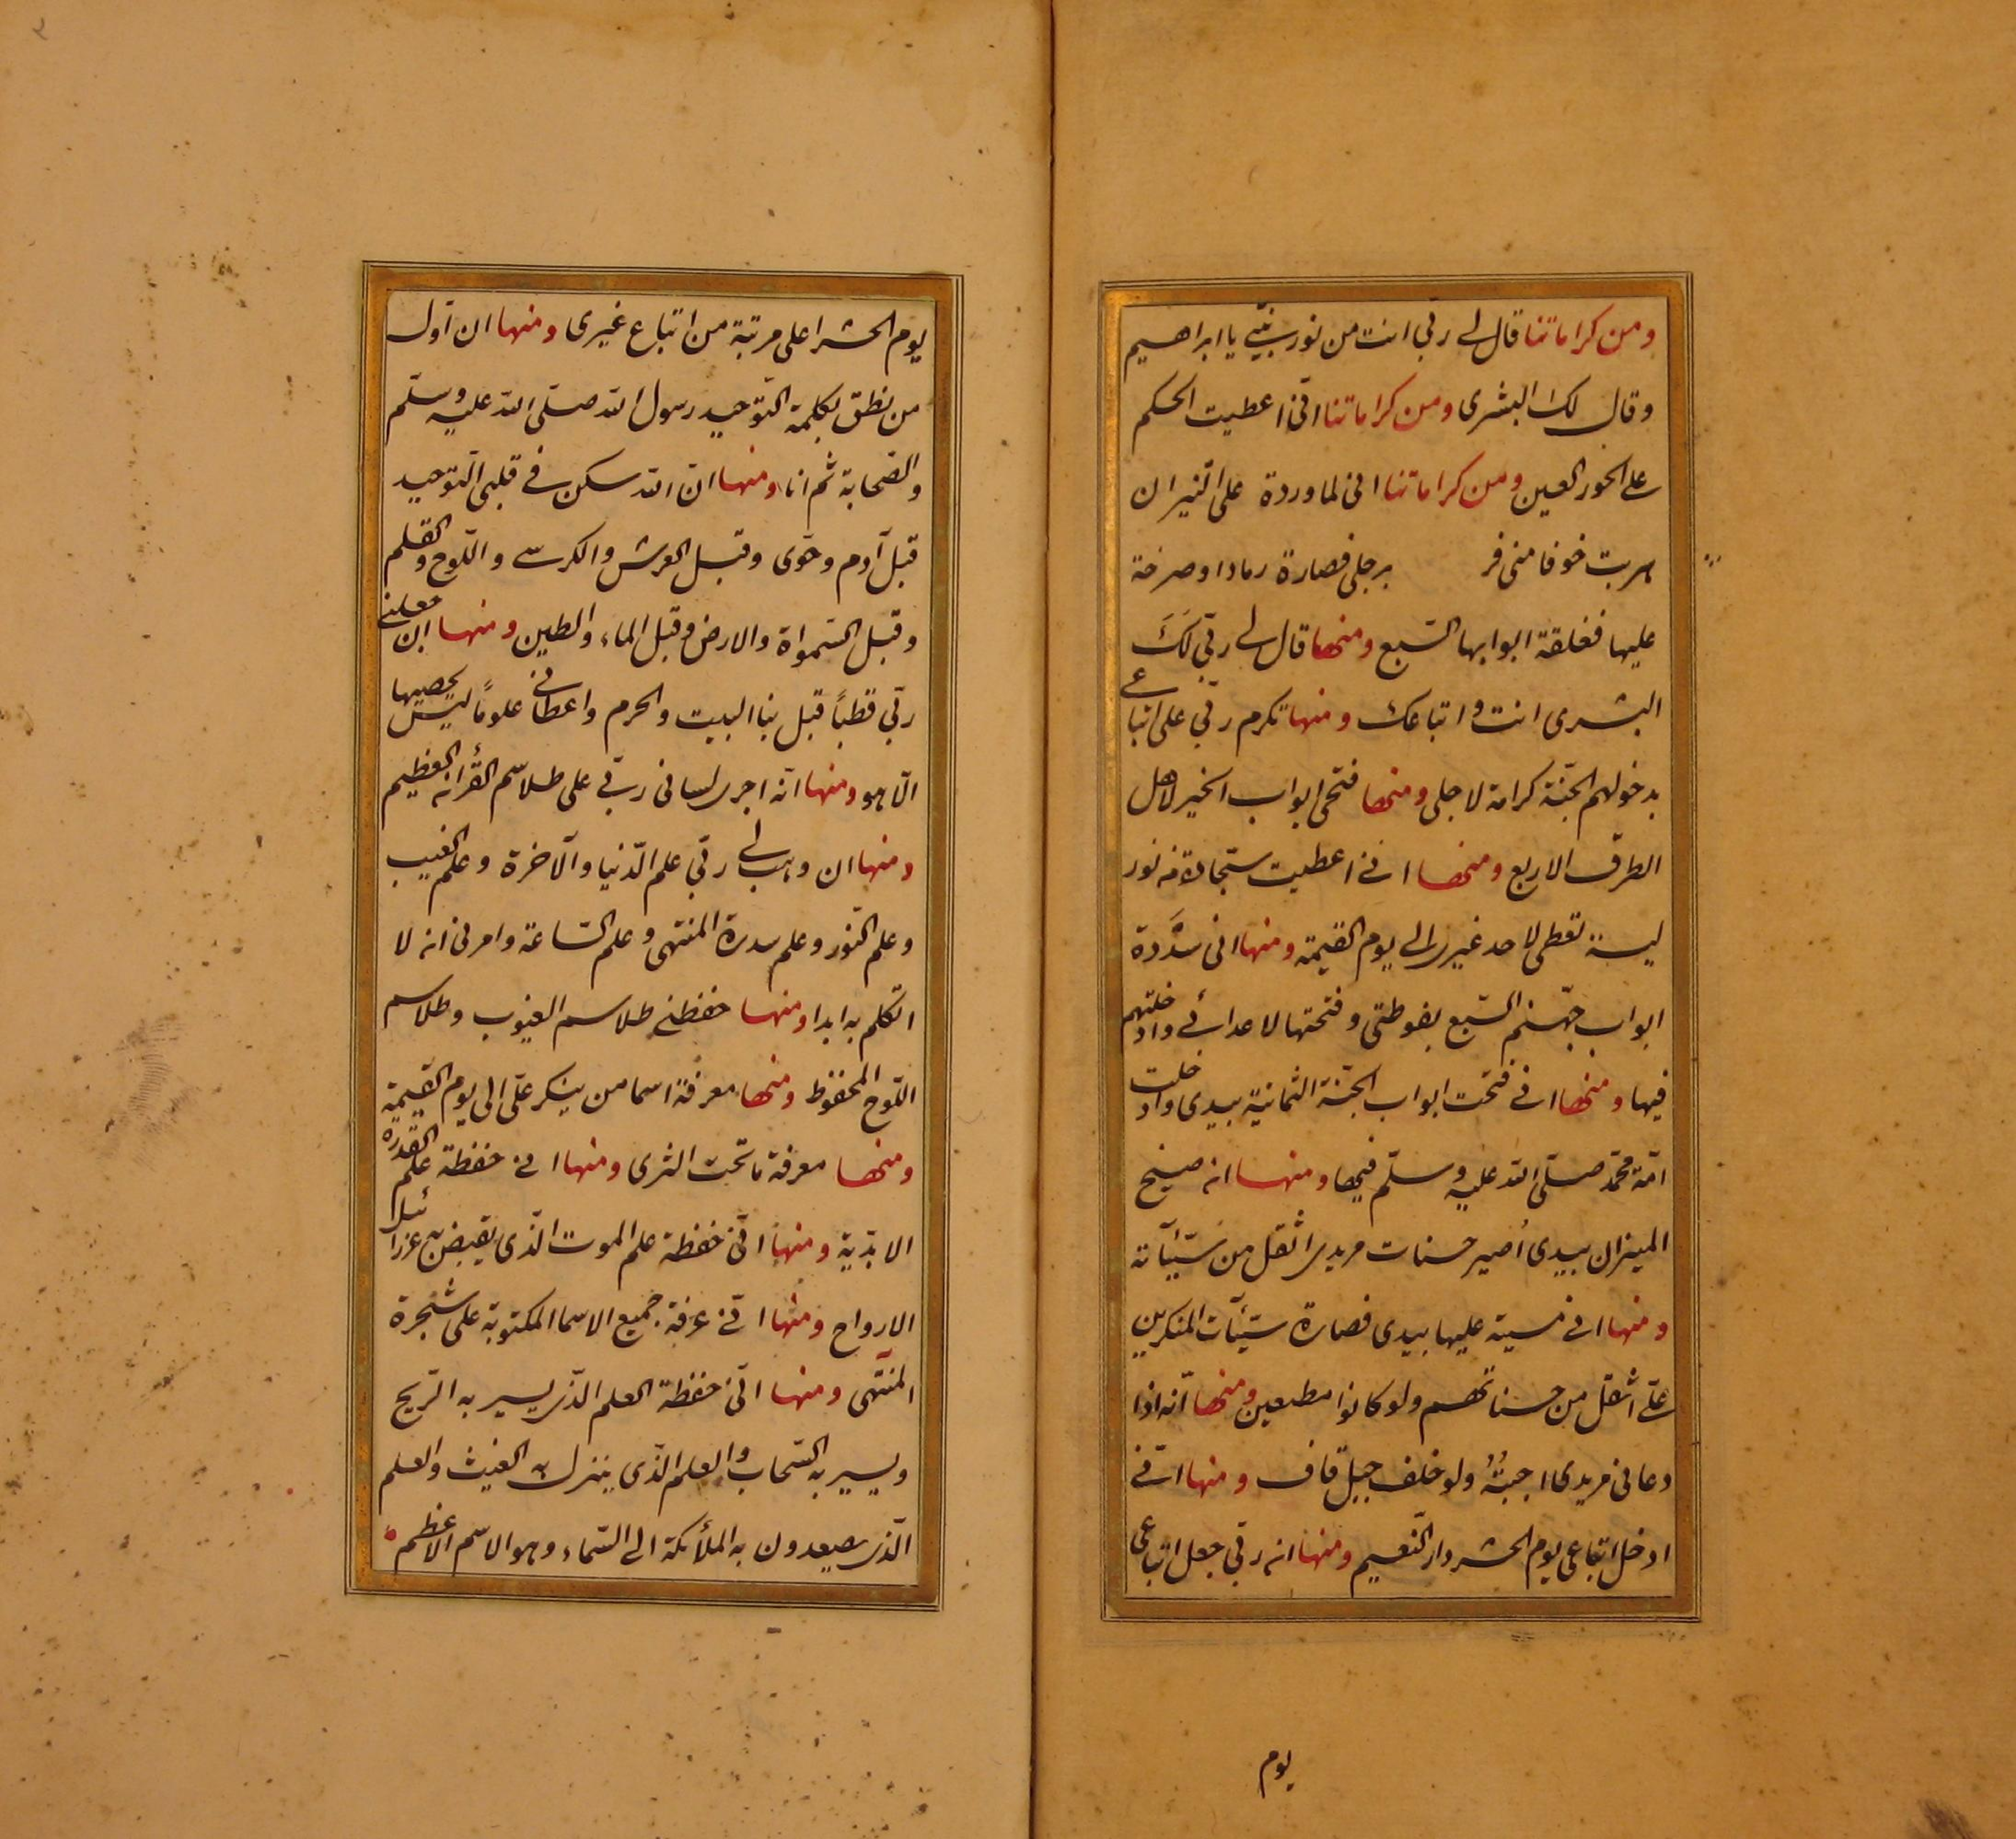 ومن كراماتنا قال لے ربّي انت من نور نبيّے يا ابراهيم
وقال لك البشرى ومن كراماتنا انّى اعطيت الحكم
على الحور العين ومن كراماتنا انى لما وردة على النيران
هربت خوفا منى فر برجلى فصارة رمادا وصرخة
عليها فغلقة ابوابها السّبع ومنها قال لے ربّي لَكَ
البشرى انت و اتباعك ومنها تكرم ربّي على اتباعے
بدخولهم الجنّة كرامة لاجلى ومنها فتحى ابواب الخير لاهل
الطرق الاربع ومنها انے اعطيت سجّادة من نور
ليسة تعطى لاحد غيرى الى يوم القيمة ومنها انى سدَّدة
ابواب جهنّم السّبع بفوطتى وفتحتها لاعدائے وادخلتهم
فيها ومنها انے فتحت ابواب الجنّة الثمانية بيدى وادخلت
امّة محمّد صلّى الله عليه وسلّم فيها ومنها ان صنج
الميزان بيدى اُصير حسنات مريدى اثقل من سيّئاته
ومنها انے مسية عليها بيدى فصارة سيّئآت المنكرين
علىّ اثقل من حسناتهم ولو كانوا مطيعين ومنها انّه اذا
دعانى مريدى اجبتُهُ ولو خلف جبل قاف ومنها انّے
ادخل اتباعى يوم الحشر دار النّعيم ومنها ان ربّي جعل اتباعى
يوم
يوم الحشر اعلى مرتبة من اتباع غيرى ومنها ان اوّل
من نطق بكلمة التّوحيد رسول الله صلّى الله عليه وسلّم
والصّحابة ثم انا ومنها انّ الله سكن فے قلبى التّوحيد
قبل آدم وحوّى وقبل العرش والكرسے واللّوح والقلم
وقبل السّمواة والارض وقبل الماء والطين ومنها ان جعلنے
ربّي قطباً قبل بنا البيت والحرم واعطانے علوماً ليس يحصيها
الّا هو ومنها انّه اجرى لسانى ربّے على طلاسم القرأن العظيم
ومنها ان وهب لے ربّي علم الدّنيا والآخرة وعلم الغيب
وعلم النّور وعلم سدرة المنتهى وعلم السّاعة وامرنى ان لا
اتكلم به ابدا ومنها حفظنے طلاسم الغيوب وطلاسم
اللّوح المحفوظ ومنها معرفة اسما من ينكر علىّ الى يوم القيمة
ومنها معرفة ما تحت الثرى ومنها انے حفظة علم القدرة
الابدّية ومنها انّے حفظة علم الموت الّذى يقبض به عزرائيل
الارواح ومنها انّے عرفة جميع الاسما المكتوبة على شجرة
المنتهى ومنها انّے حفظة العلم الّذى يسير به الرّيح
ويسير به السّحاب والعلم الّذى ينزل به الغيث والعلم
الّذى يصعدون به الملأئكة الى السّماء وهو الاسم الاعظم